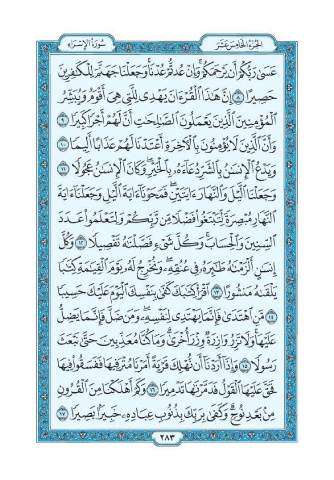 سُورَةُ الإِسْرَاء
الجُزْءُ الخَامِسَ عَشَرَ
عَسَىٰ رَبُّكُمْ أَن يَرْحَمَكُمْ وَإِنْ عُدتُّمْ عُدْنَا وَجَعَلْنَا جَهَنَّمَ لِلْكَٰفِرِينَ
حَصِيرًا ٨ إِنَّ هَٰذَا ٱلْقُرْءَانَ يَهْدِى لِلَّتِى هِىَ أَقْوَمُ وَيُبَشِّرُ
ٱلْمُؤْمِنِينَ ٱلَّذِينَ يَعْمَلُونَ ٱلصَّٰلِحَٰتِ أَنَّ لَهُمْ أَجْرًا كَبِيرًا ٩
وَأَنَّ ٱلَّذِينَ لَا يُؤْمِنُونَ بِٱلْءَاخِرَةِ أَعْتَدْنَا لَهُمْ عَذَابًا أَلِيمًا ١٠
وَيَدْعُ ٱلْإِنسَٰنُ بِٱلشَّرِّ دُعَآءَهُۥ بِٱلْخَيْرِ وَكَانَ ٱلْإِنسَٰنُ عَجُولًا ١١
وَجَعَلْنَا ٱلَّيْلَ وَٱلنَّهَارَ ءَايَتَيْنِ فَمَحَوْنَآ ءَايَةَ ٱلَّيْلِ وَجَعَلْنَآ ءَايَةَ
ٱلنَّهَارِ مُبْصِرَةً لِّتَبْتَغُوا۟ فَضْلًا مِّن رَّبِّكُمْ وَلِتَعْلَمُوا۟ عَدَدَ
ٱلسِّنِينَ وَٱلْحِسَابَ وَكُلَّ شَىْءٍ فَصَّلْنَٰهُ تَفْصِيلًا ١٢ وَكُلَّ
إِنسَٰنٍ أَلْزَمْنَٰهُ طَٰٓئِرَهُۥ فِى عُنُقِهِۦ وَنُخْرِجُ لَهُۥ يَوْمَ ٱلْقِيَٰمَةِ كِتَٰبًا
يَلْقَىٰهُ مَنشُورًا ١٣ ٱقْرَأْ كِتَٰبَكَ كَفَىٰ بِنَفْسِكَ ٱلْيَوْمَ عَلَيْكَ حَسِيبًا
١٤ مَّنِ ٱهْتَدَىٰ فَإِنَّمَا يَهْتَدِى لِنَفْسِهِۦ وَمَن ضَلَّ فَإِنَّمَا يَضِلُّ
عَلَيْهَا وَلَا تَزِرُ وَازِرَةٌ وِزْرَ أُخْرَىٰ وَمَا كُنَّا مُعَذِّبِينَ حَتَّىٰ نَبْعَثَ
رَسُولًا ١٥ وَإِذَآ أَرَدْنَآ أَن نُّهْلِكَ قَرْيَةً أَمَرْنَا مُتْرَفِيهَا فَفَسَقُوا۟ فِيهَا
فَحَقَّ عَلَيْهَا ٱلْقَوْلُ فَدَمَّرْنَٰهَا تَدْمِيرًا ١٦ وَكَمْ أَهْلَكْنَا مِنَ ٱلْقُرُونِ
مِنۢ بَعْدِ نُوحٍ وَكَفَىٰ بِرَبِّكَ بِذُنُوبِ عِبَادِهِۦ خَبِيرًۢا بَصِيرًا ١٧
٢٨٣